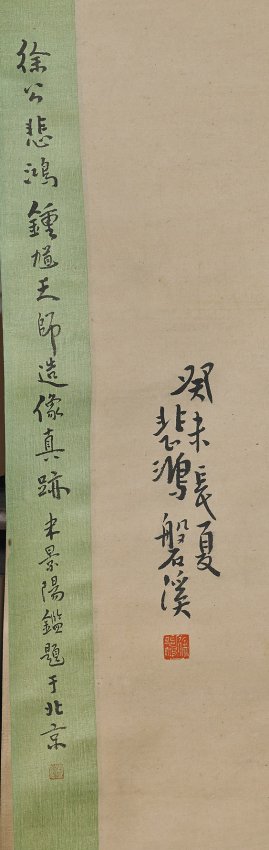 癸未長夏
悲鴻磐溪
徐公悲鴻鍾馗天師造像真跡 米景陽鑑題于北京